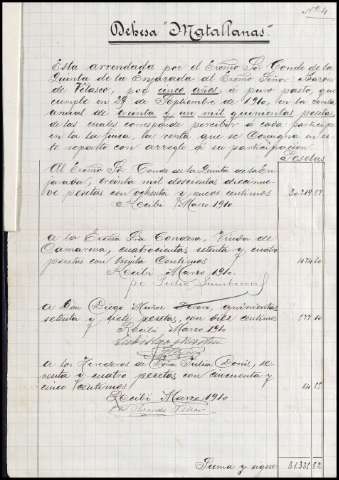 Nº 4
Dehesa "Matallanas"
Esta arrendada por el Excmo Sr Conde de la
Quinta de la Enjarada al Excmo Señor Baron
de Velasco, por cinco años a puro pasto, que
cumple en 29 de Septiembre de 1910, en la renta
anual de treinta y un mil quinientas pesetas
de las cuales corresponde percibir a cada participe
en la finca, la renta que se consigna en es
te reparto con arreglo a su participacion
Pesetas
Al Excmo Sr Conde de la Quinta de la En
jarada, mil doscientas diecinue
ve pesetas con ochenta y centimos
Recibi Marzo 1910
a la Excma Sra Condesa, Viuda de
Camarena, cuatrocientas setenta y cuatro
pesetas con treinta centimos
Recibi Marzo 1910
a Don Diego quinientas
setenta y siete pesetas, con diez centimos 577 10
Recibi Marzo 1910
a los Herederos de Doña Julia se
senta y cuatro pesetas con cincuenta y
cinco centimos
Recibi Marzo 1910
Suma y sigue